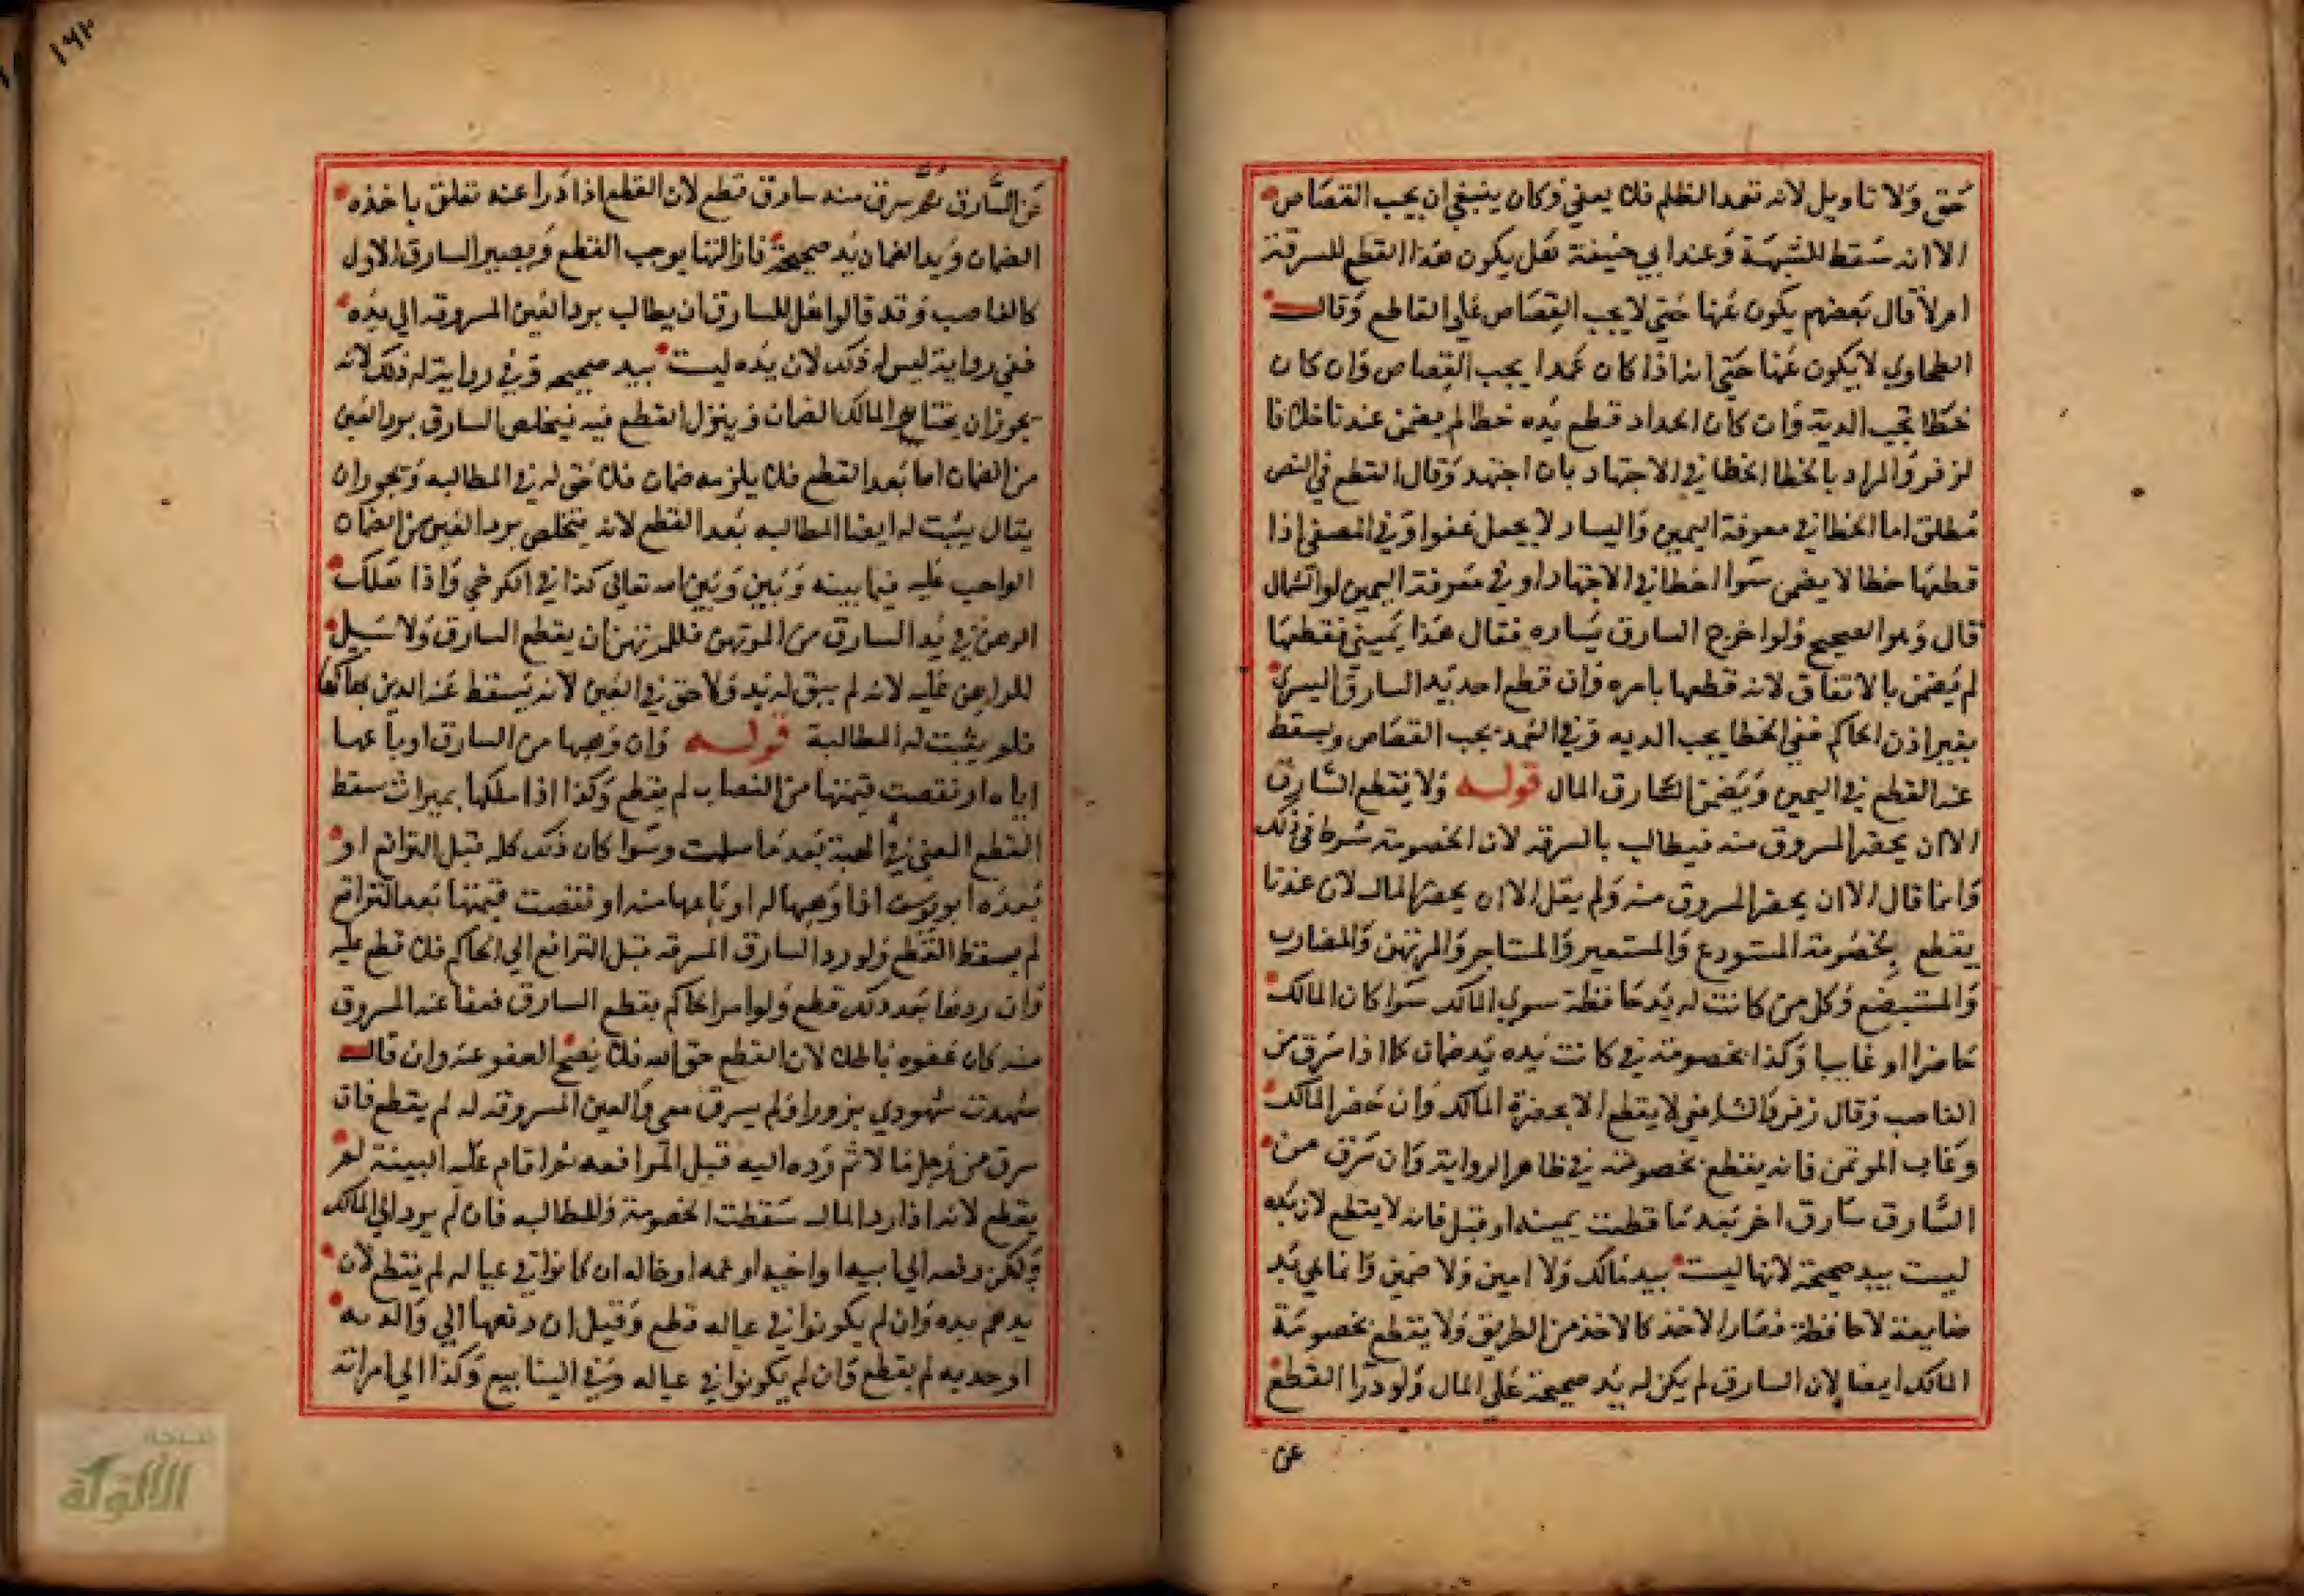 حق ولا تاويل لانه تعمد الظلم فلا يعفي وكان ينبغي ان يجب القصاص
الا انه سقط للشبهة وعند ابي حنيفة هل يكون هذا القطع للسرقة
ام لا قال بعضهم يكون عنها حتي لا يجب القصاص علي القاطع وقال
الطحاوي لا يكون عنها حتي انه اذا كان عمدا يجب القصاص وان كان
خطا تجب الدية وان كان الحداد قطع يده خطا لم يضمن عندنا خلافا
لزفر والمراد بالخطا الخطا في الاجتهاد بان اجتهد وقال القطع في النص
مطلق اما الخطا في معرفة اليمين واليسار لا يجعل عفوا وفي المصفي اذا
قطعها خطا لا يضمن سوا اخطا في الاجتهاد او في معرفة اليمين والشمال
قال وهو الصحيح ولو اخرج السارق يساره فقال هذا يميني فقطعها
لم يضمن بالاتفاق لانه قطعها بامره وان قطع احد يد السارق اليسري
بغير اذن الحاكم ففي الخطا يجب الديه وفي العمد يجب القصاص ويسقط
عنه القطع في اليمين ويضمن السارق المال قوله ولا يقطع السارق
الا ان يحضر المسروق منه فيطالب بالسرقه لان الخصومة شرط في ذلك
وانما قال الا ان يحضر المسروق منه ولم يقل الا ان يحضر المالك لان عندنا
يقطع بخصومة المستودع والمستعير والمستاجر والمرتهن والمضارب
والمستبضع وكل من كانت له يد حافظة سوي المالك سوا كان المالك
حاضرا او غايبا وكذا بخصومة من كانت يده يد ضمان كما اذا سرق من
الغاصب وقال زفر والشافعي لا يقطع الا بحضرة المالك وان حضر المالك
وغاب الموتمن فانه يقطع بخصومته في ظاهر الرواية وان سرق من
السارق سارق اخر بعد ما قطعت يمينه او قبل فانه لا يقطع لان يده
ليست بيد صحيحة لانها ليست بيد مالك ولا امين ولا ضمين وانما هي يد
ضايعة لا حافظة فصار الاخذ كالاخذ من الطريق ولا يقطع بخصومة
المالك ايضا لان السارق لم يكن له يد صحيحة علي المال ولو درا القطع
عن
١٦٢
عن السارق ثم سرق منه سارق قطع لان القطع اذا درا عنه تعلق باخذه
الضمان ويد الضمان يد صحيحة فازالتها يوجب القطع ويصير السارق الاول
كالغاصب وقد قالوا هل للسارق ان يطالب برد العين المسروقه الي يده
ففي رواية ليس له ذلك لان يده ليست بيد صحيحه وفي رواية له ذلك لانه
يجوز ان يختار المالك الضمان ويترك القطع فيه فيتخلص السارق برد العين
من الضمان اما بعد القطع فلا يلزمه ضمان فلا حق له في المطالبه ويجوز ان
يقال يثبت له ايضا المطالبه بعد القطع لانه يتخلص برد العين من الضمان
الواجب عليه فيما بينه وبين وبين الله تعالي كذا في الكرخي واذا هلك
الرهن في يد السارق من المرتهن فللمرتهن ان يقطع السارق ولا سبيل
للراهن عليه لانه لم يبق له يد ولا حق في العين لانه يسقط عنه الدين بهلاكها
فلم يثبت له المطالبة قوله وان وهبها من السارق او باعها
اياه او نقصت قيمتها من النصاب لم يقطع وكذا اذا ملكها بميراث سقط
القطع المعني في الهبة بعد ما سلمت وسوا كان ذلك كله قبل الترافع او
بعده ابو يوسف اذا وهبها له او باعها منه او نقصت قيمتها بعد الترافع
لم يسقط القطع ولو رد السارق السرقه قبل الترافع الي الحاكم فلا قطع عليه
وان ردها بعد ذلك قطع ولو امر الحاكم بقطع السارق فعفا عنه المسروق
منه كان عفوه باطلا لان القطع حق الله فلا يصح العفو عنه وان قال
شهدت شهودي بزور او لم يسرق مني والعين المسروقة له لم يقطع فان
سرق من رجل مالا ثم رده اليه قبل المرافعه ثم اقام عليه البينة لم
يقطع لانه اذا رد المال سقطت الخصومة والمطالبه فان لم يرد الي المالك
ولكن دفعه الي ابيه او اخيه او عمه او خاله ان كانوا في عياله لم يقطع لان
يدهم يده وان لم يكونوا في عياله قطع وقيل ان دفعها الي والديه
او جديه لم يقطع وان لم يكونوا في عياله وفي الينابيع وكذا الي امراته
شبكة
الألوكة